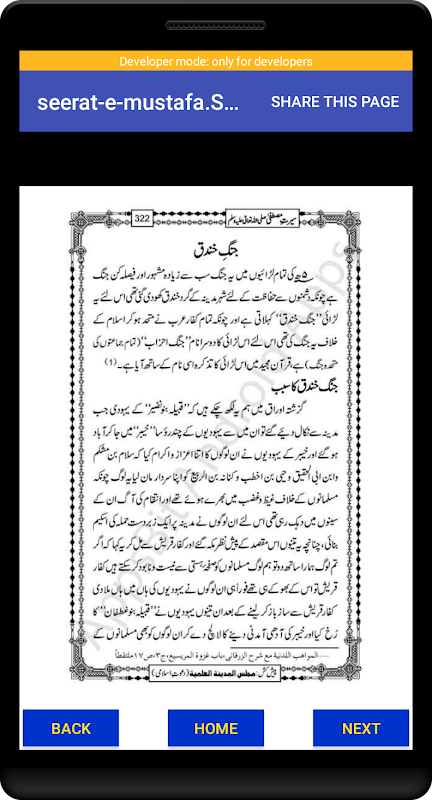 Developer mode: only for developers
seerat-e-mustafa.S... SHARE THIS PAGE
سیرتِ مصطفیٰ صلی اللہ تعالیٰ علیہ وسلم 322
جنگِ خندق
۵ھ کی تمام لڑائیوں میں یہ جنگ سب سے زیادہ مشہور اور فیصلہ کن جنگ
ہے چونکہ دشمنوں سے حفاظت کے لئے شہر مدینہ کے گرد خندق کھودی گئی تھی اس لئے یہ
لڑائی ”جنگ خندق“ کہلاتی ہے اور چونکہ تمام کفار عرب نے متحد ہو کر اسلام کے
خلاف یہ جنگ کی تھی اس لئے اس لڑائی کا دوسرا نام ”جنگ احزاب“ (تمام جماعتوں کی
متحدہ جنگ) ہے، قرآن مجید میں اس لڑائی کا تذکرہ اسی نام کے ساتھ آیا ہے۔ (۱)
جنگ خندق کا سبب
گزشتہ اوراق میں ہم یہ لکھ چکے ہیں کہ ”قبیلہ بنو نضیر“ کے یہودی جب
مدینہ سے نکال دیئے گئے تو ان میں سے یہودیوں کے چند رؤسا ”خیبر“ میں جا کر آباد
ہو گئے اور خیبر کے یہودیوں نے ان لوگوں کا اتنا اعزاز و اکرام کیا کہ سلام بن مشکم
و ابن ابی الحقیق و حیی بن اخطب و کنانہ بن الربیع کو اپنا سردار مان لیا یہ لوگ چونکہ
مسلمانوں کے خلاف غیظ و غضب میں بھرے ہوئے تھے اور انتقام کی آگ ان کے
سینوں میں دہک رہی تھی اس لئے ان لوگوں نے مدینہ پر ایک زبردست حملہ کی اسکیم
بنائی، چنانچہ یہ تینوں اس مقصد کے پیش نظر مکہ گئے اور کفار قریش سے مل کر یہ کہا کہ اگر
تم لوگ ہمارا ساتھ دو تو ہم لوگ مسلمانوں کو صفحۂ ہستی سے نیست و نابود کر سکتے ہیں کفار
قریش تو اس کے بھوکے ہی تھے فوراً ہی ان لوگوں نے یہودیوں کی ہاں میں ہاں ملا دی
کفار قریش سے ساز باز کر لینے کے بعد ان تینوں یہودیوں نے ”قبیلہ بنو غطفان“ کا
رخ کیا اور خیبر کی آدھی آمدنی دینے کا لالچ دے کر ان لوگوں کو بھی مسلمانوں کے
.....المواهب اللدنية مع شرح الزرقاني،باب غزوة المريسيع،ج٣،ص١٧ملتقطاً
پیش کش: مجلس المدينة العلمية (دعوتِ اسلامی)
BACK HOME NEXT